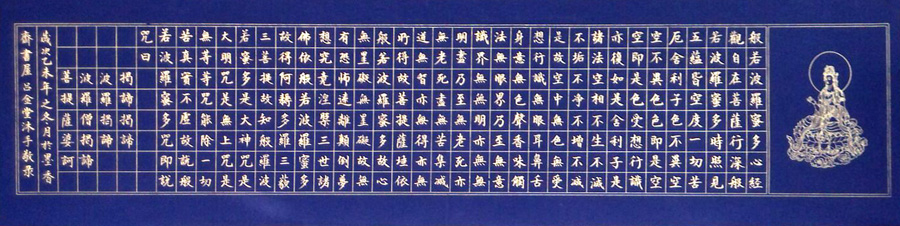 般若波羅蜜多心經
觀自在菩薩行深般
若波羅蜜多時照見
五蘊皆空度一切苦
厄舍利子色不異空
空不異色色即是空
空即是色受想行識
亦復如是舍利子是
諸法空相不生不滅
不垢不淨不增不減
是故空中無色無受
想行識無眼耳鼻舌
身意無色聲香味觸
法無眼界乃至無意
識界無無明亦無無
明盡乃至無老死亦
無老死盡無苦集滅
道無智亦無得以無
所得故菩提薩埵依
般若波羅蜜多故心
無罣礙無罣礙故無
有恐怖遠離顛倒夢
想究竟涅槃三世諸
佛依般若波羅蜜多
故得阿耨多羅三藐
三菩提故知般若波
羅蜜多是大神咒是
大明咒是無上咒是
無等等咒能除一切
苦真實不虛故說般
若波羅蜜多咒即說
咒曰
揭諦揭諦
波羅揭諦
波羅僧揭諦
菩提薩婆訶
歲次乙未年之冬月於墨香
齋書屋呂金堂沐手敬录